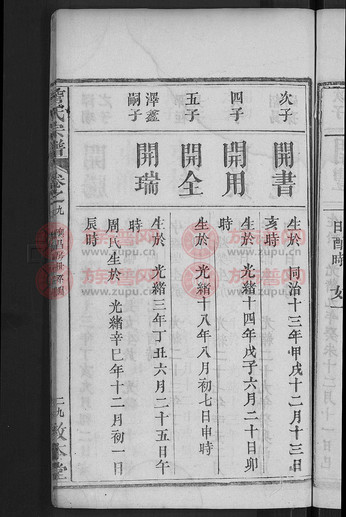 次子
開書
生於同治十三年甲戌十二月十三日
亥時
四子
開用
生於光緒十四年戊子六月二十日卯
時
五子
開全
生於光緒十八年八月初七日申時
澤鑫
嗣子
開瑞
生於光緒三年丁丑六月二十五日午
時
周氏生於光緒辛巳年十二月初一日
辰時
氏宗譜
卷之九
二九
敦本堂
日酉時
女
族譜网
www.zupu.cn